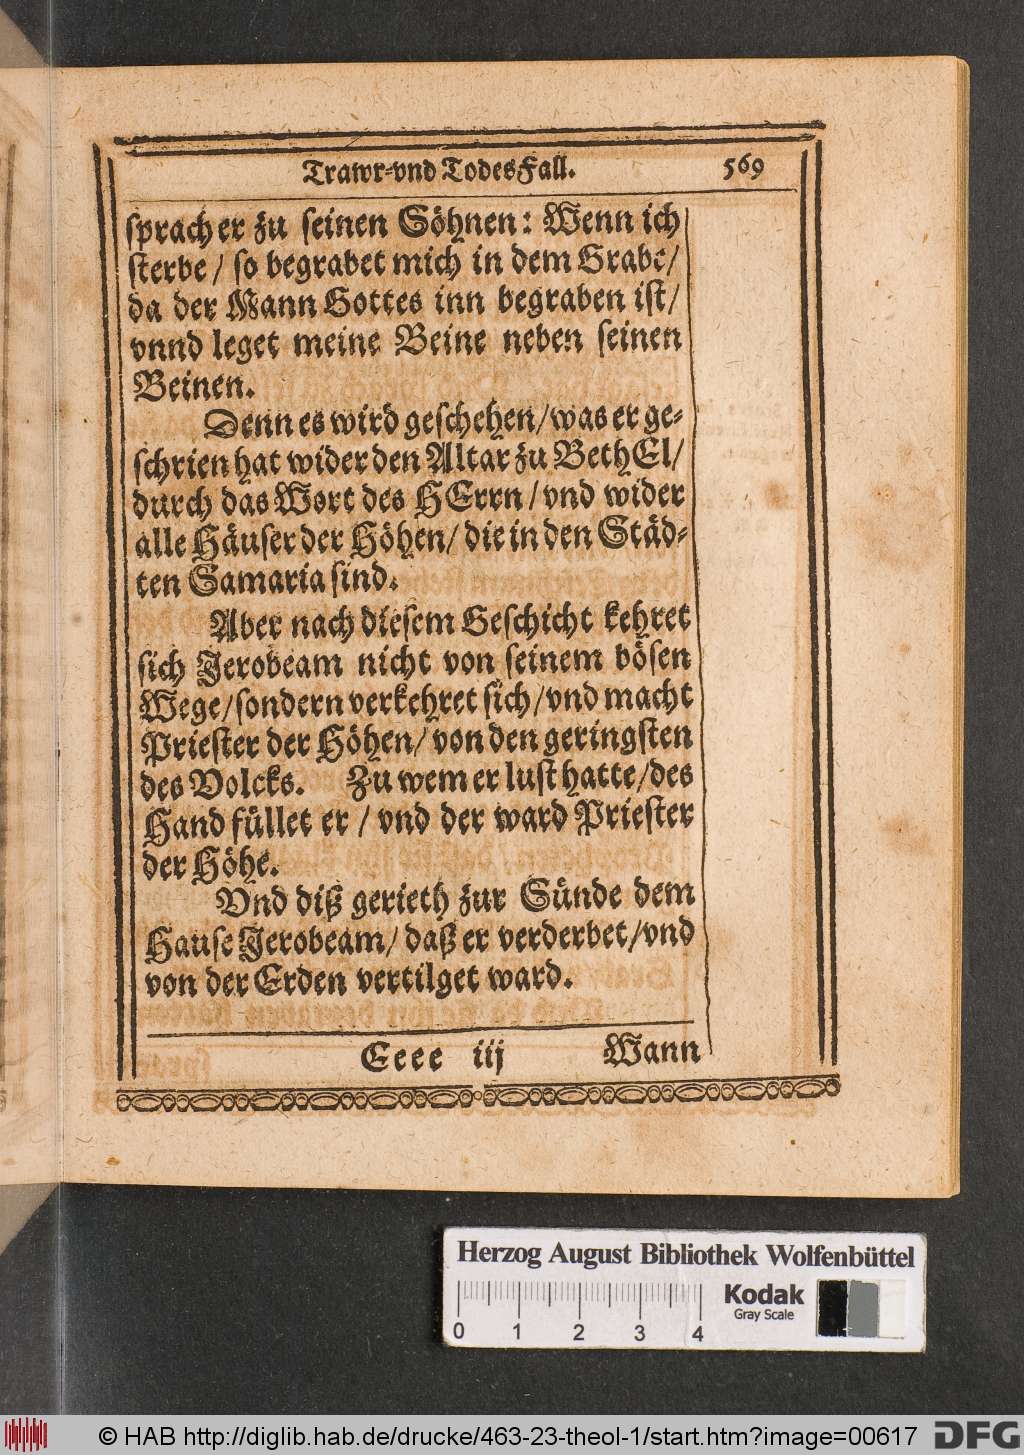 Trawr-vnd TodesFall. 569
sprach er zu seinen Söhnen: Wenn ich
sterbe / so begrabet mich in dem Grabe /
da der Mann Gottes inn begraben ist /
vnnd leget meine Beine neben seinen
Beinen.
Denn es wird geschehen / was er ge-
schrien hat wider den Altar zu BethEl /
durch das Wort des HErrn / vnd wider
alle Häuser der Höhen / die in den Städ-
ten Samaria sind.
Aber nach diesem Geschicht kehret
sich Jerobeam nicht von seinem bösen
Wege / sondern verkehret sich / vnd macht
Priester der Höhen / von den geringsten
des Volcks. Zu wem er lust hatte / des
Hand füllet er / vnd der ward Priester
der Höhe.
Vnd diß gerieth zur Sünde dem
Hause Jerobeam / daß er verderbet / vnd
von der Erden vertilget ward.
Eeee iij Wann
Herzog August Bibliothek Wolfenbüttel
Kodak
Gray Scale
0 1 2 3 4
© HAB http://diglib.hab.de/drucke/463-23-theol-1/start.htm?image=00617
DFG